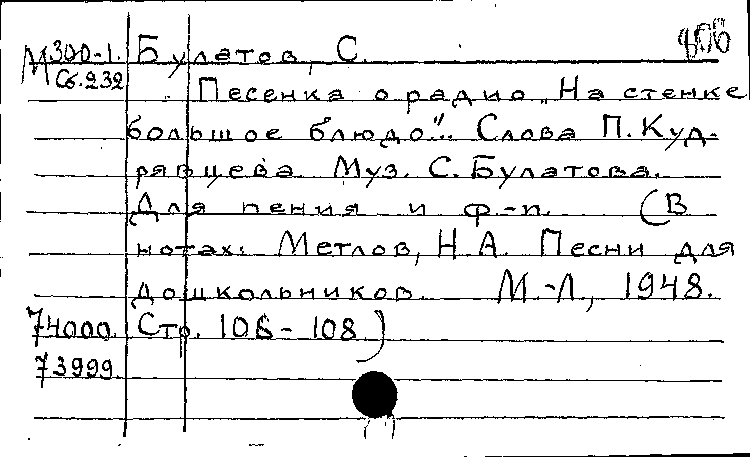 806
М 300-1. Булатов, С.
Сб.232
Песенка о радио „На стенке
большое блюдо". Слова П. Куд-
рявцева. Муз. С. Булатова.
Для пения и ф.-п. (В
нотах: Метлов, Н.А. Песни для
дошкольников. М.-Л., 1948.
74000. Стр. 106-108)
73999.